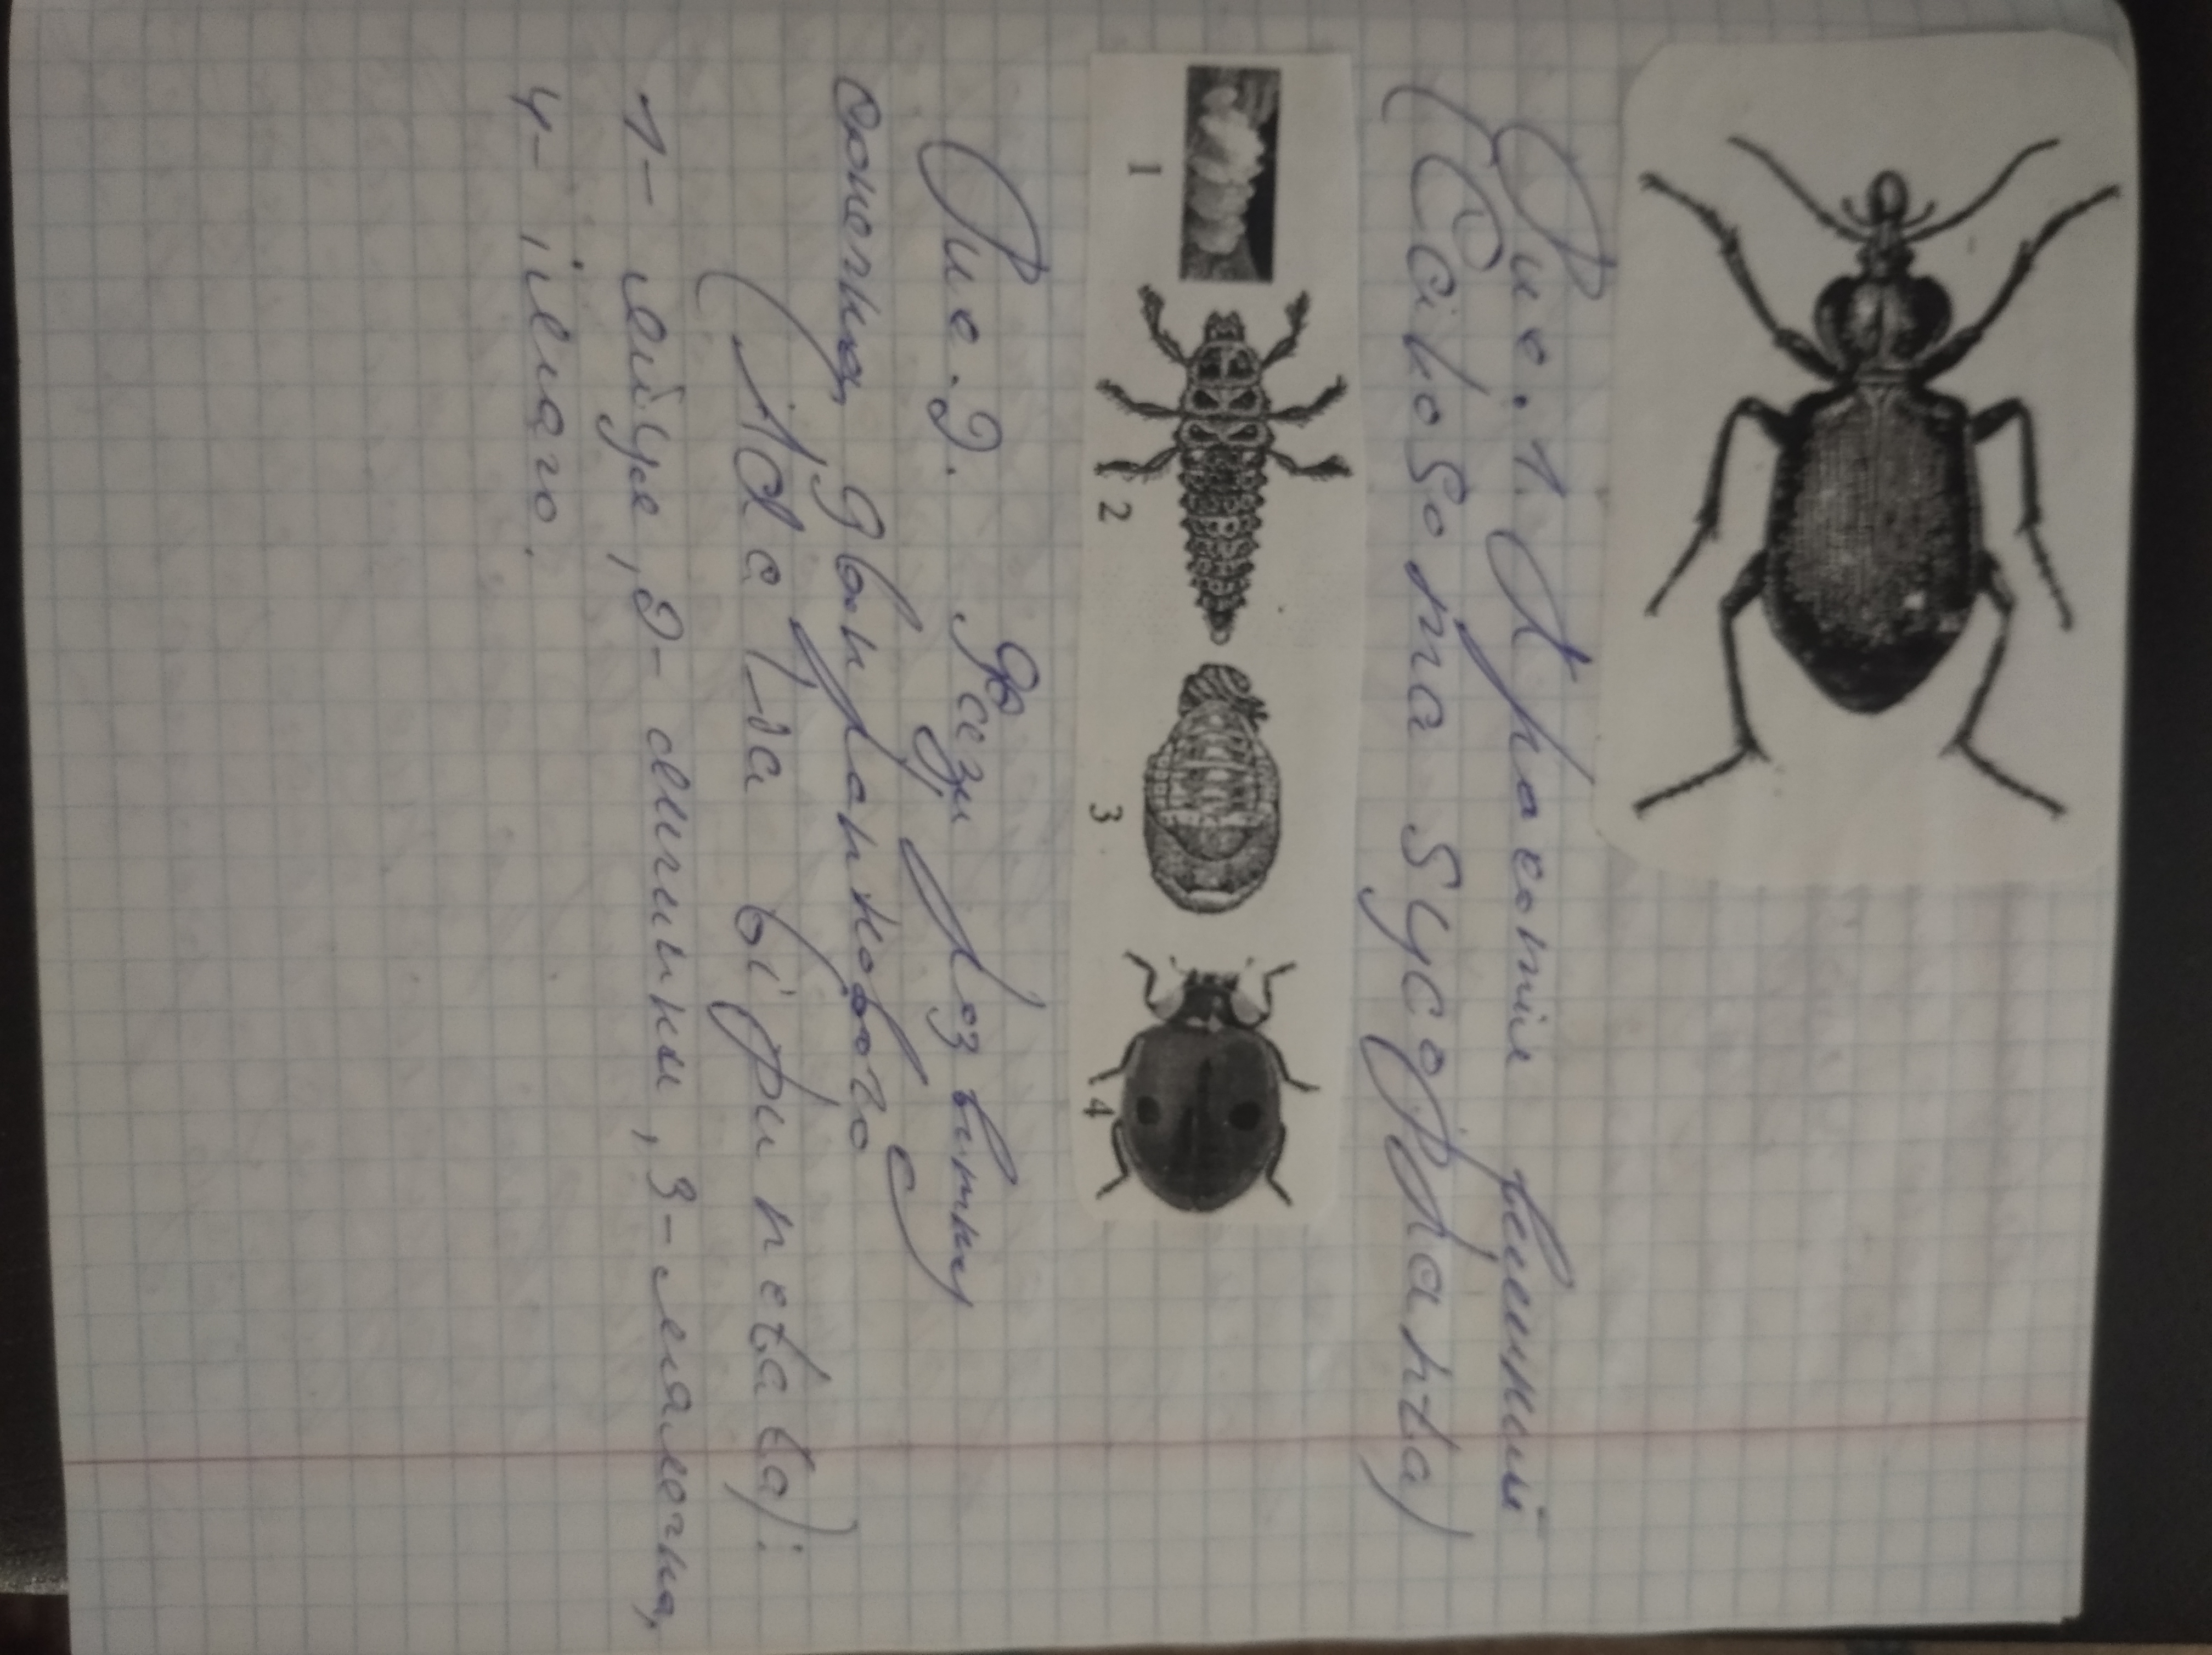 Рис. 1. Красотіл великий
(Calosoma sycophanta)
1 2 3 4
Рис. 2. Фази розвитку
сонечка двокрапкового
(Adalia bipunctata):
1- яйця, 2- личинки, 3- лялечка,
4- імаго.